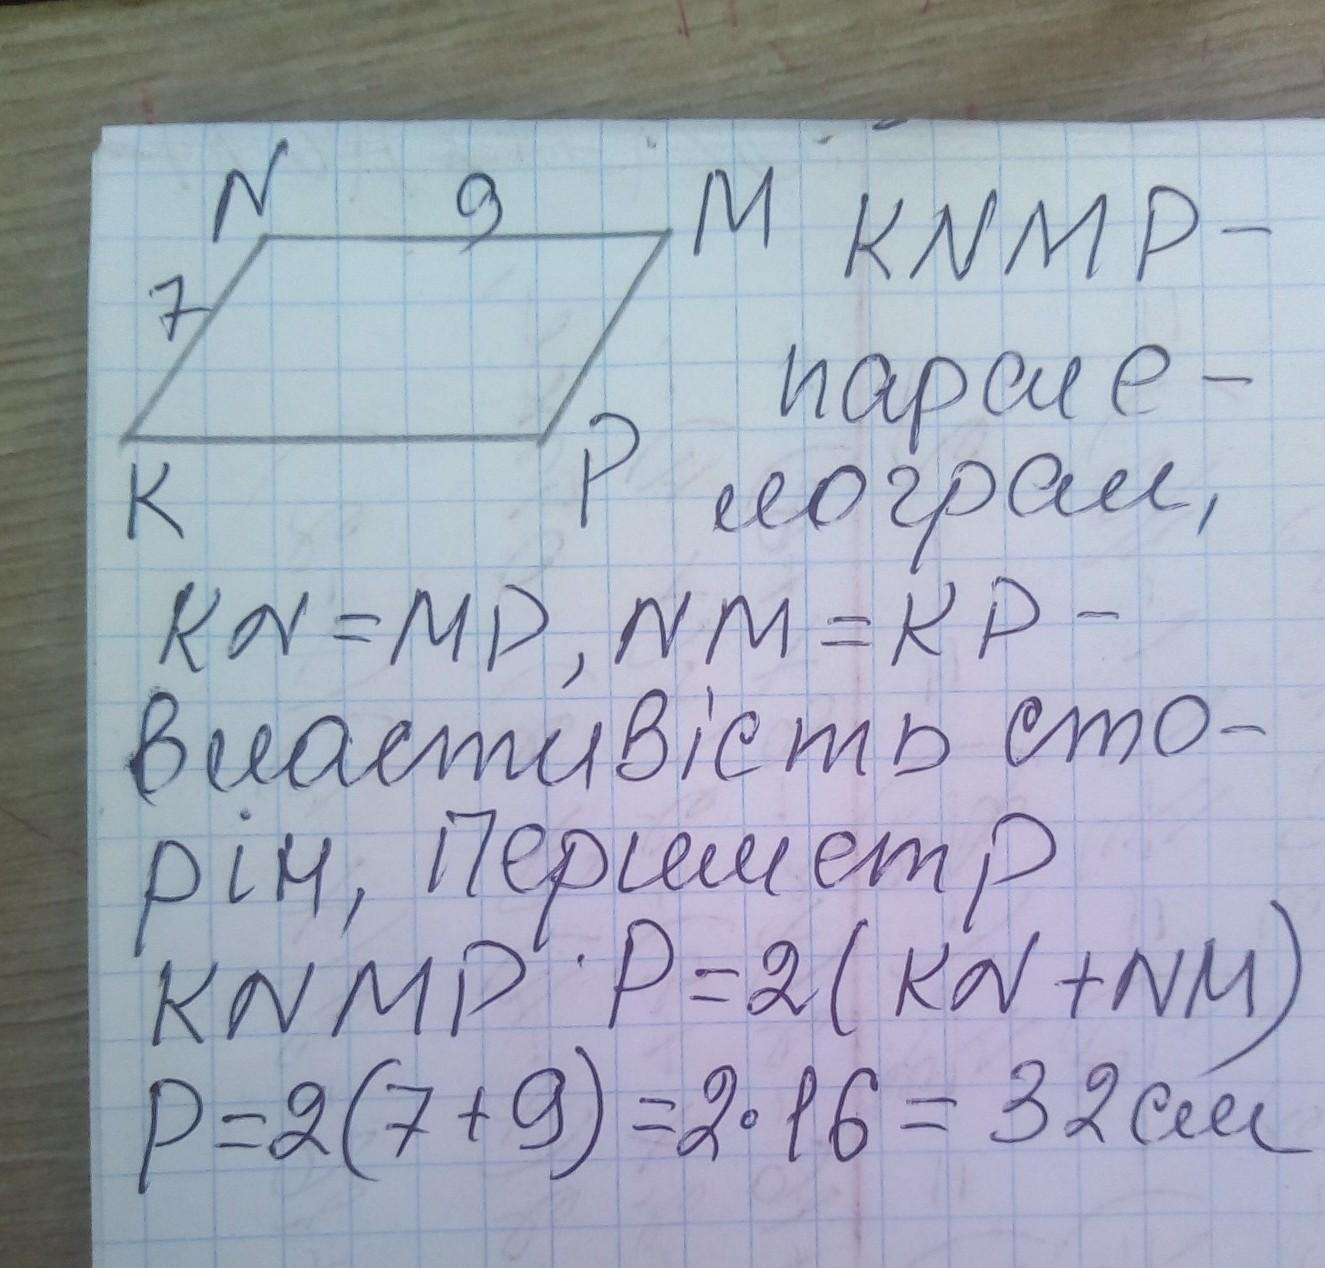 N 9 M KNMP-
7
парале-
K P лограм,
KN=MP, NM=KP-
властивість сто-
рін, Периметр
KNMP. P=2(KN+NM)
P=2(7+9)=2•16=32см